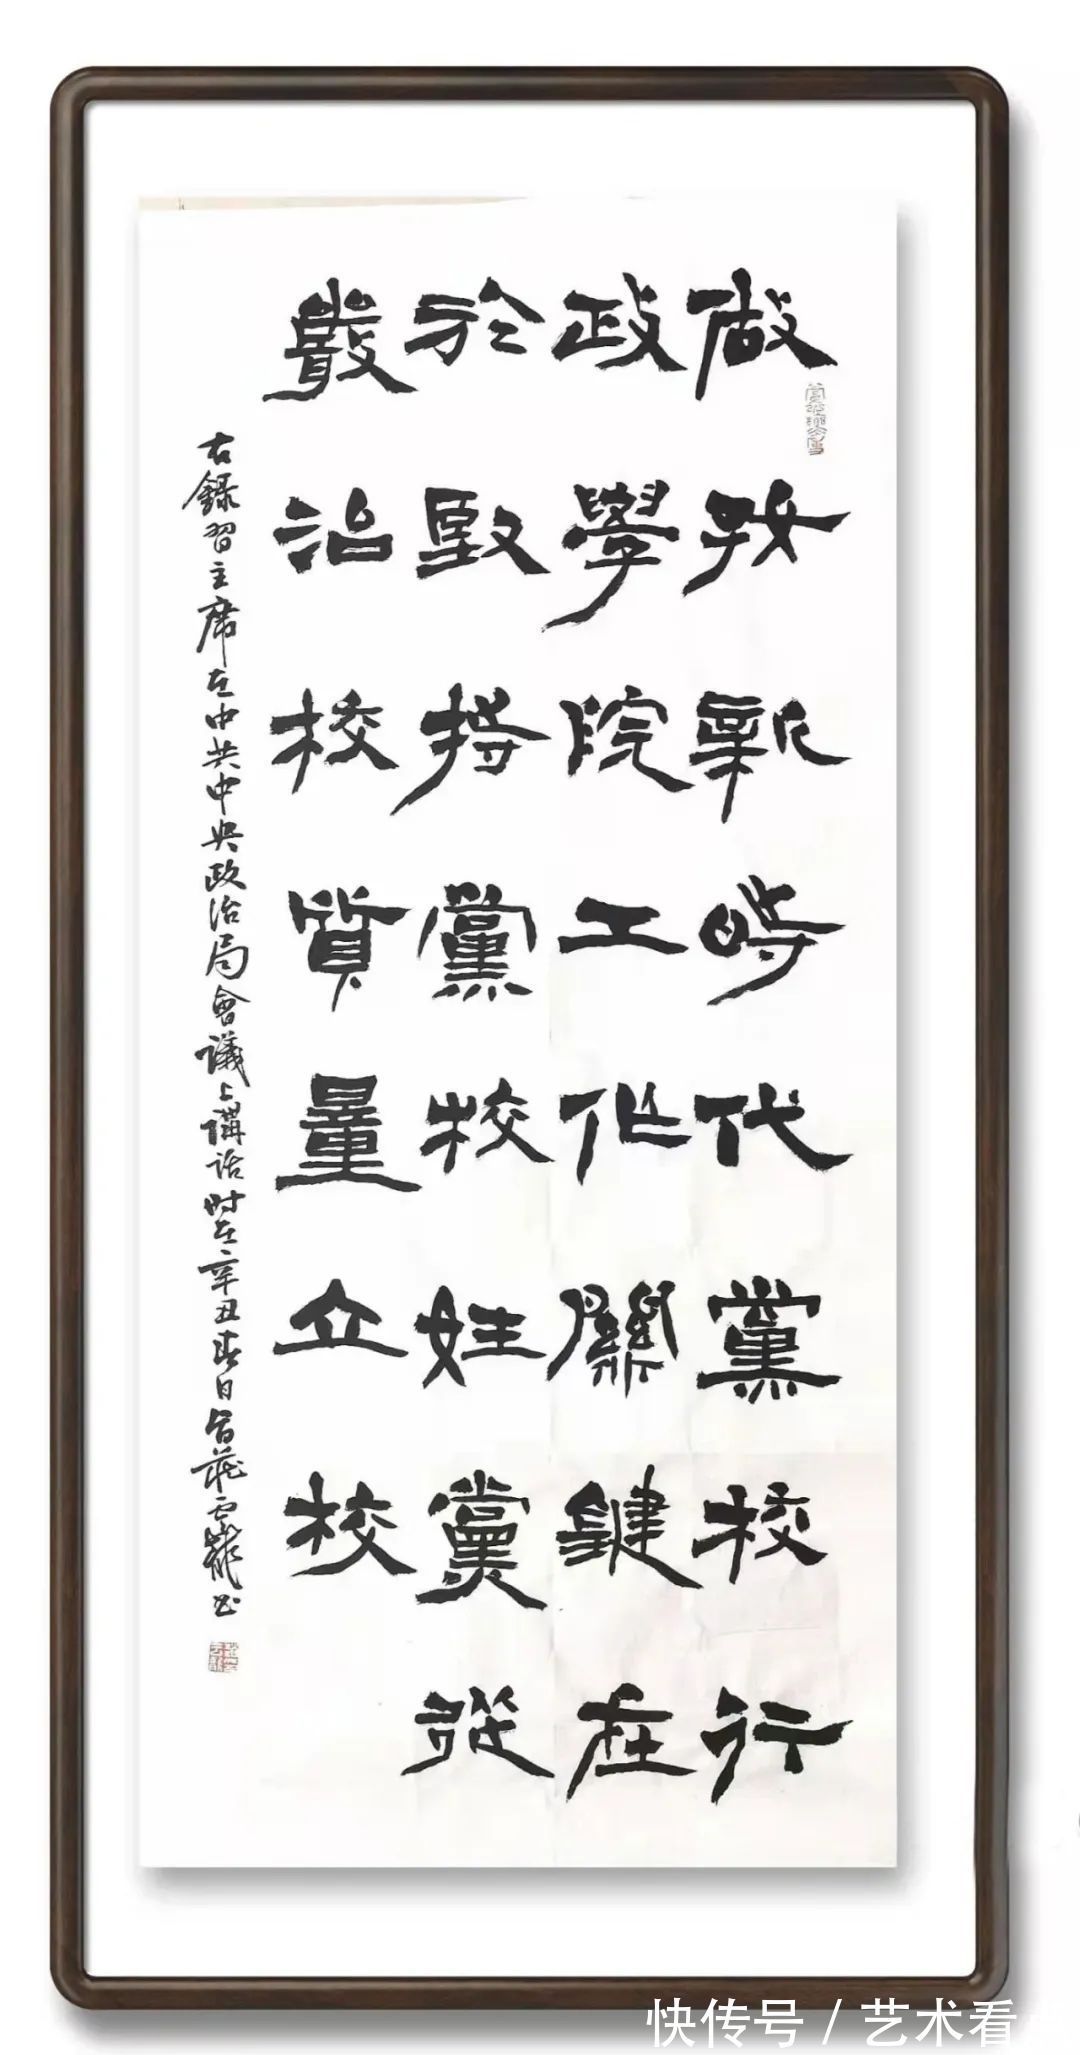 做好新時代黨校行
政學院工作關鍵在
於堅持黨校姓黨從
嚴治校質量立校
右錄習主席在中共中央政治局會議上講話时在辛丑春日雲龍书
快传号 / 艺术看